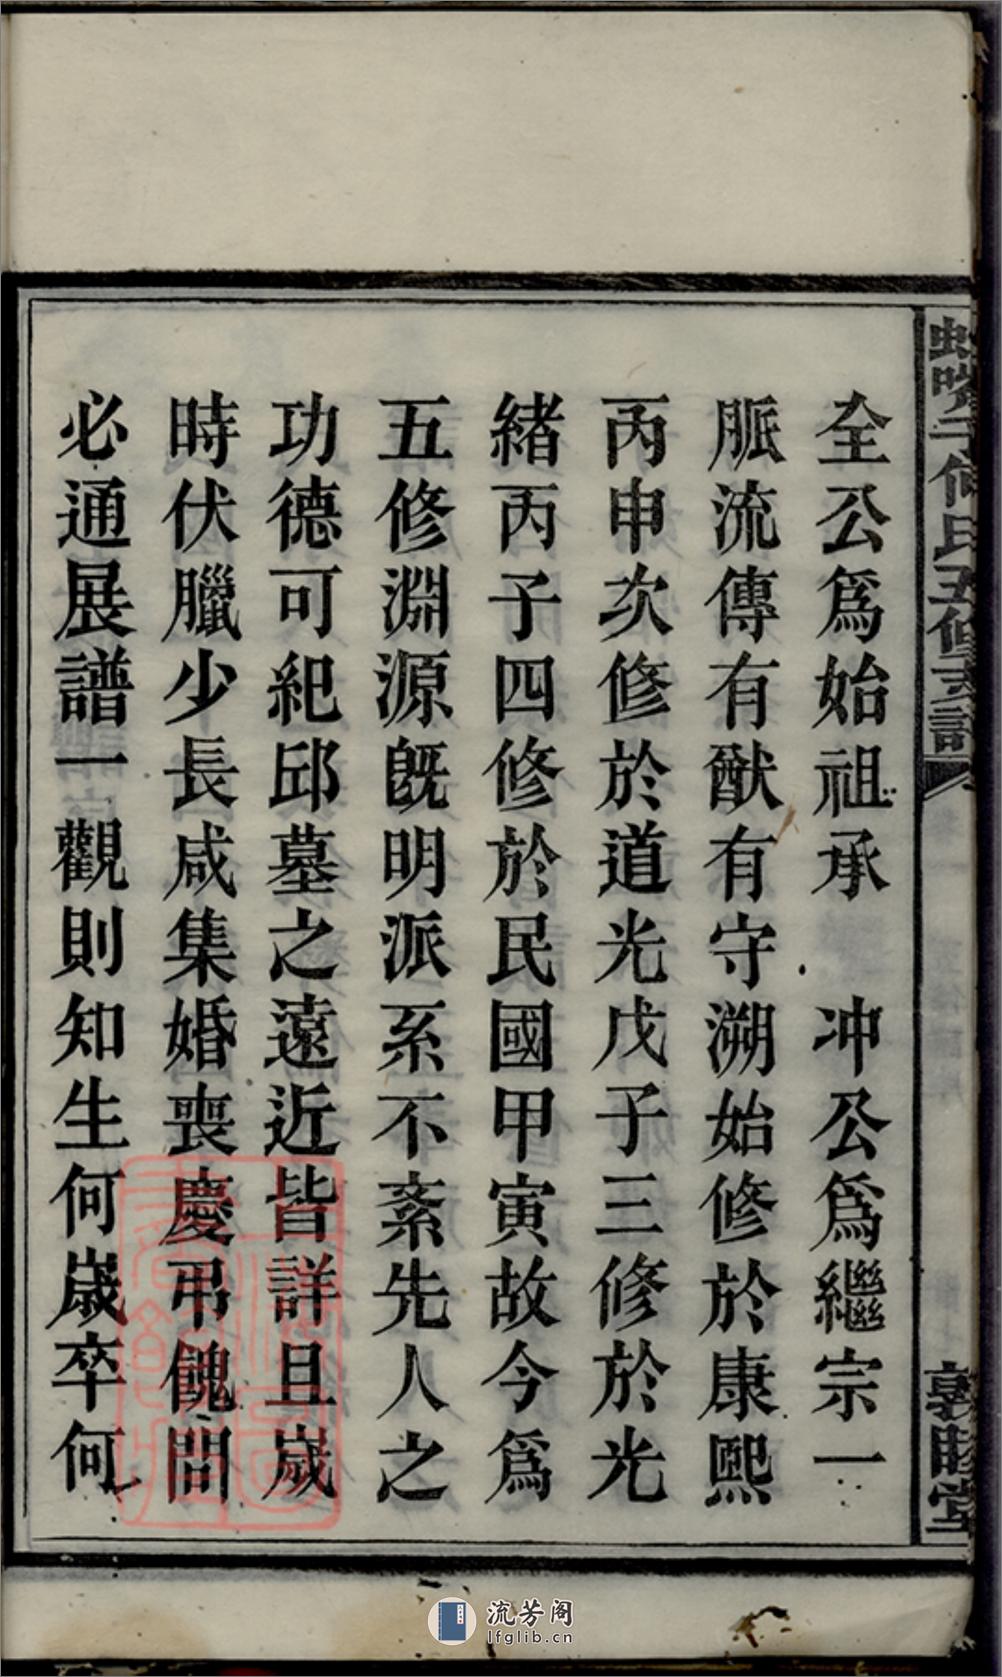 全公爲始祖承　冲公爲繼宗一
脈流傳有猷有守溯始修於康熙
丙申次修於道光戊子三修於光
緒丙子四修於民國甲寅故今爲
五修淵源旣明派系不紊先人之
功德可紀邱墓之遠近皆詳且歲
時伏臘少長咸集婚喪慶弔餽問
必通展譜一觀則知生何歲卒何
何氏五修支譜
敦睦堂
流芳阁
lfglib.cn